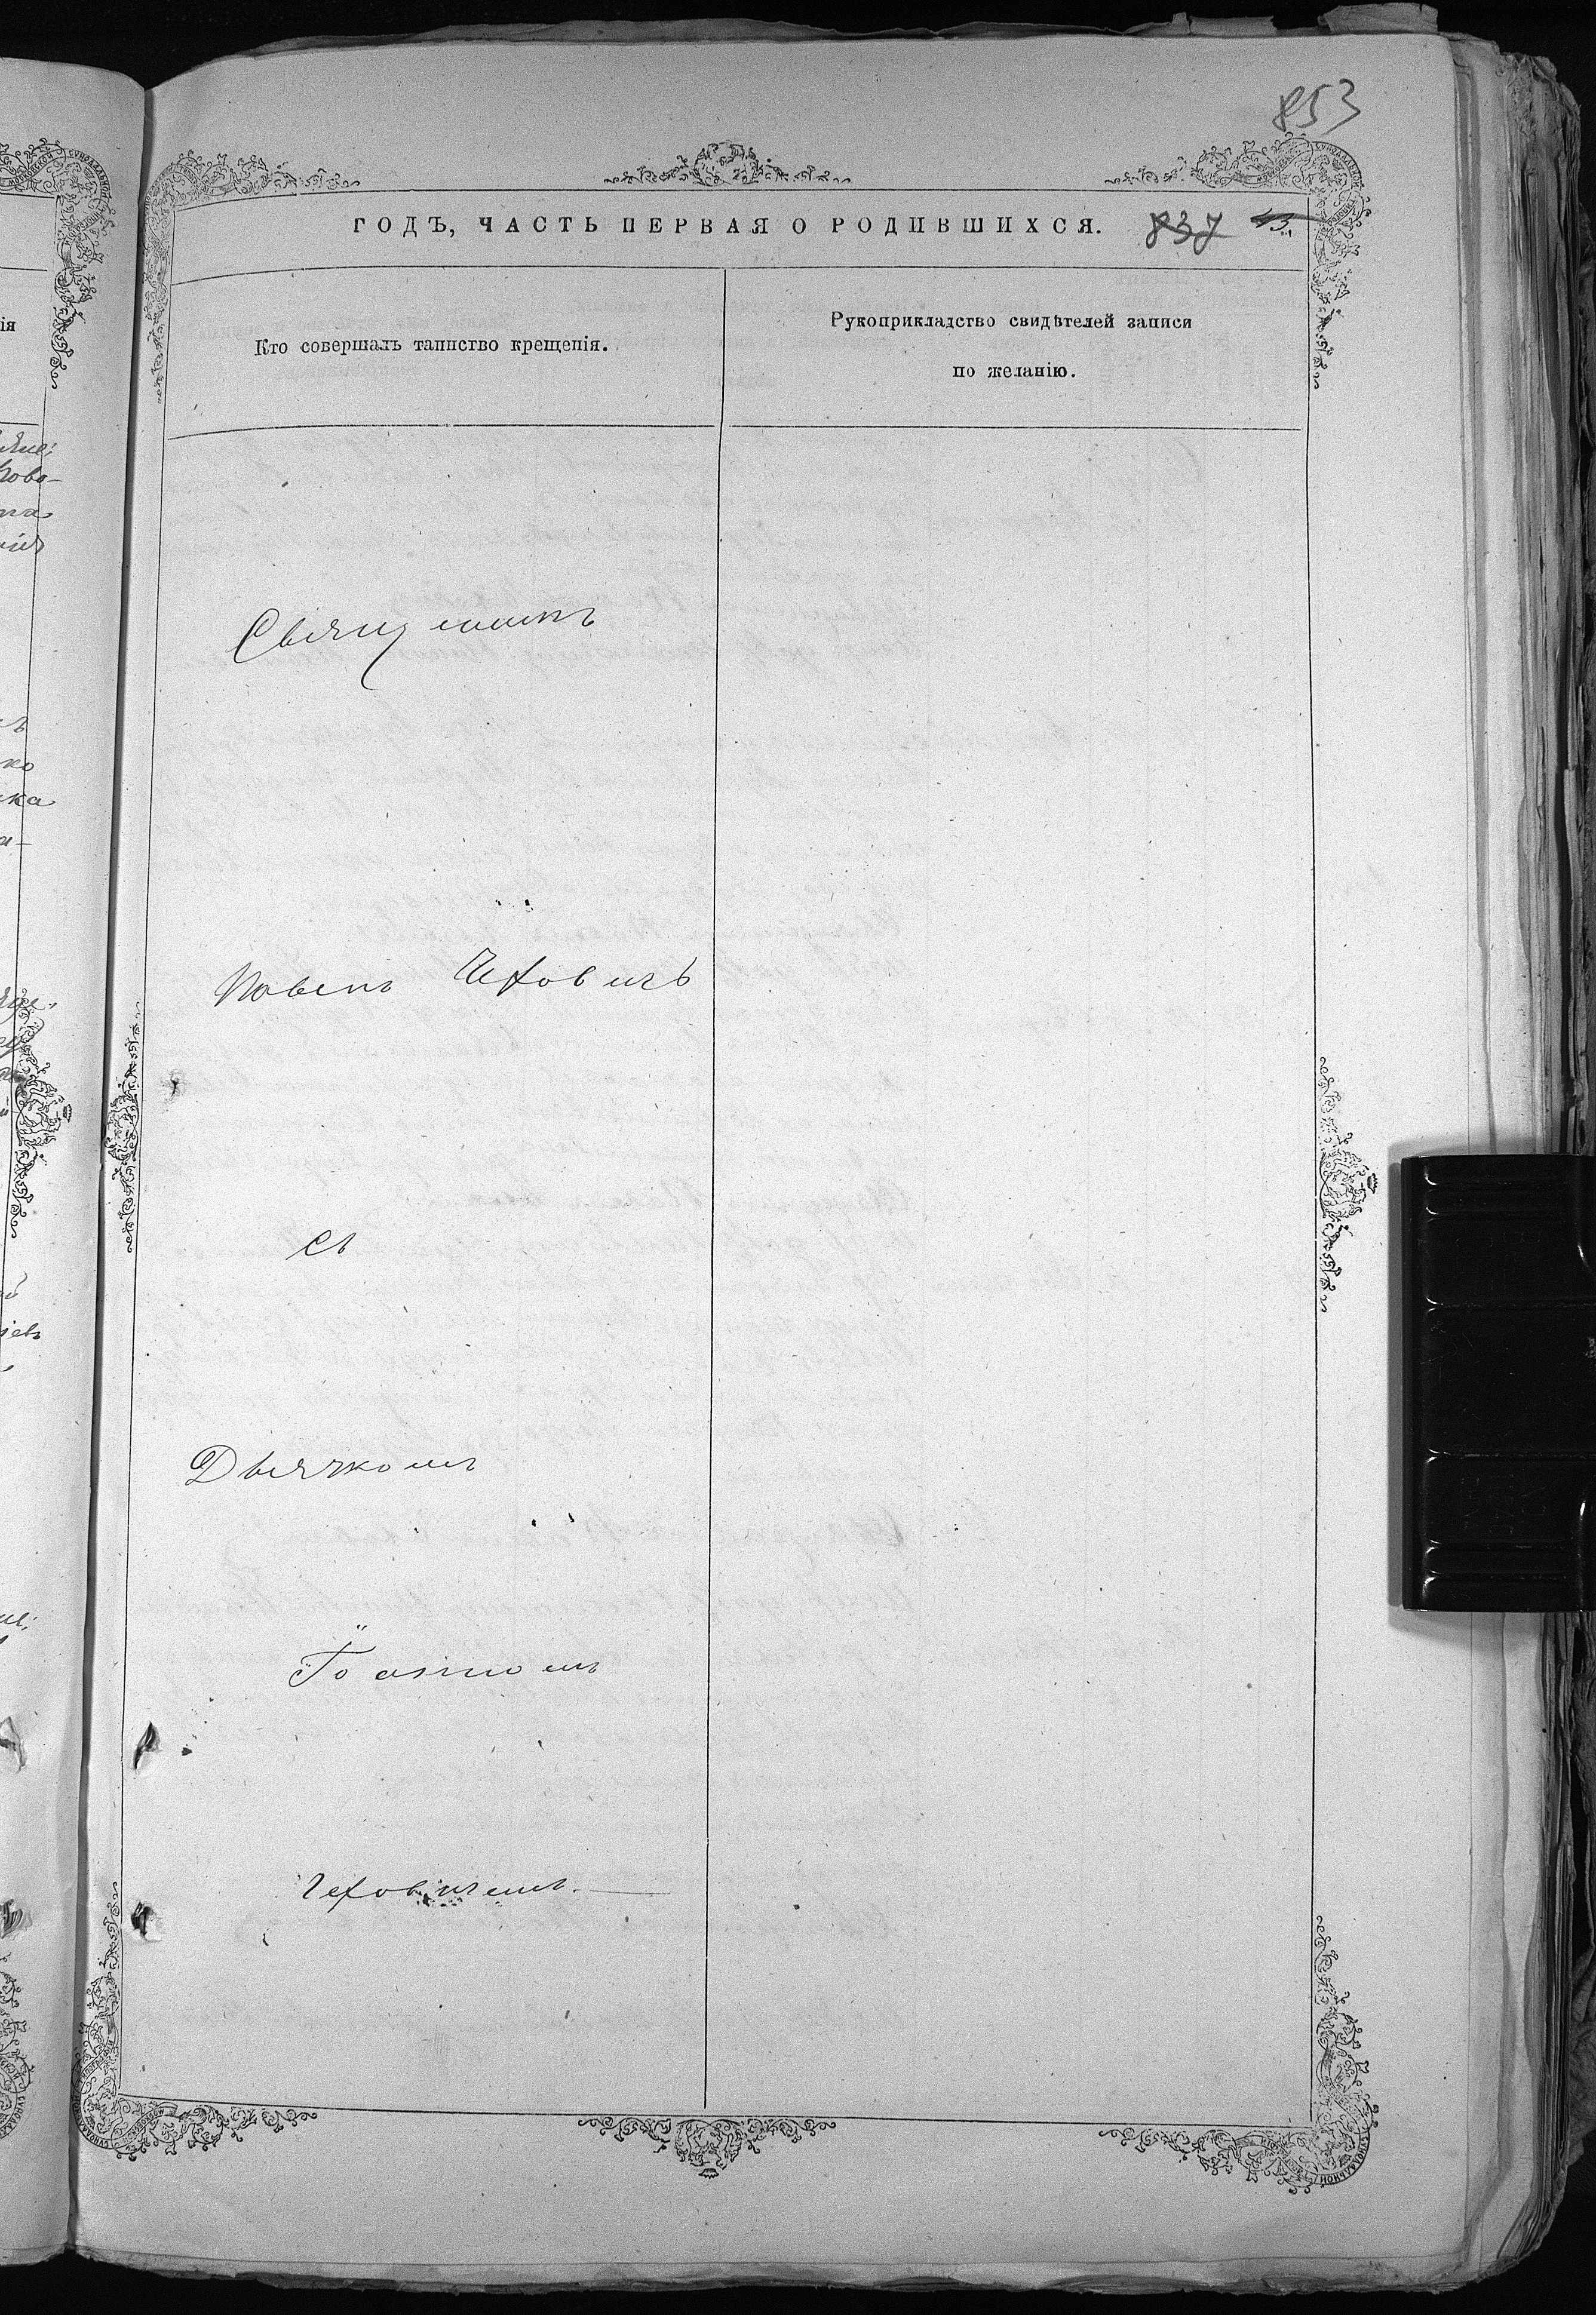 853
ГОДЪ, ЧАСТЬ ПЕРВАЯ О РОДИВШИХСЯ. 837
Кто совершалъ таинство крещенія.
Рукоприкладство свидѣтелей записи
по желанію.
Священникъ
Павелъ Чеховичъ
съ
Дьячкомъ
Іоанномъ
Чеховичемъ.